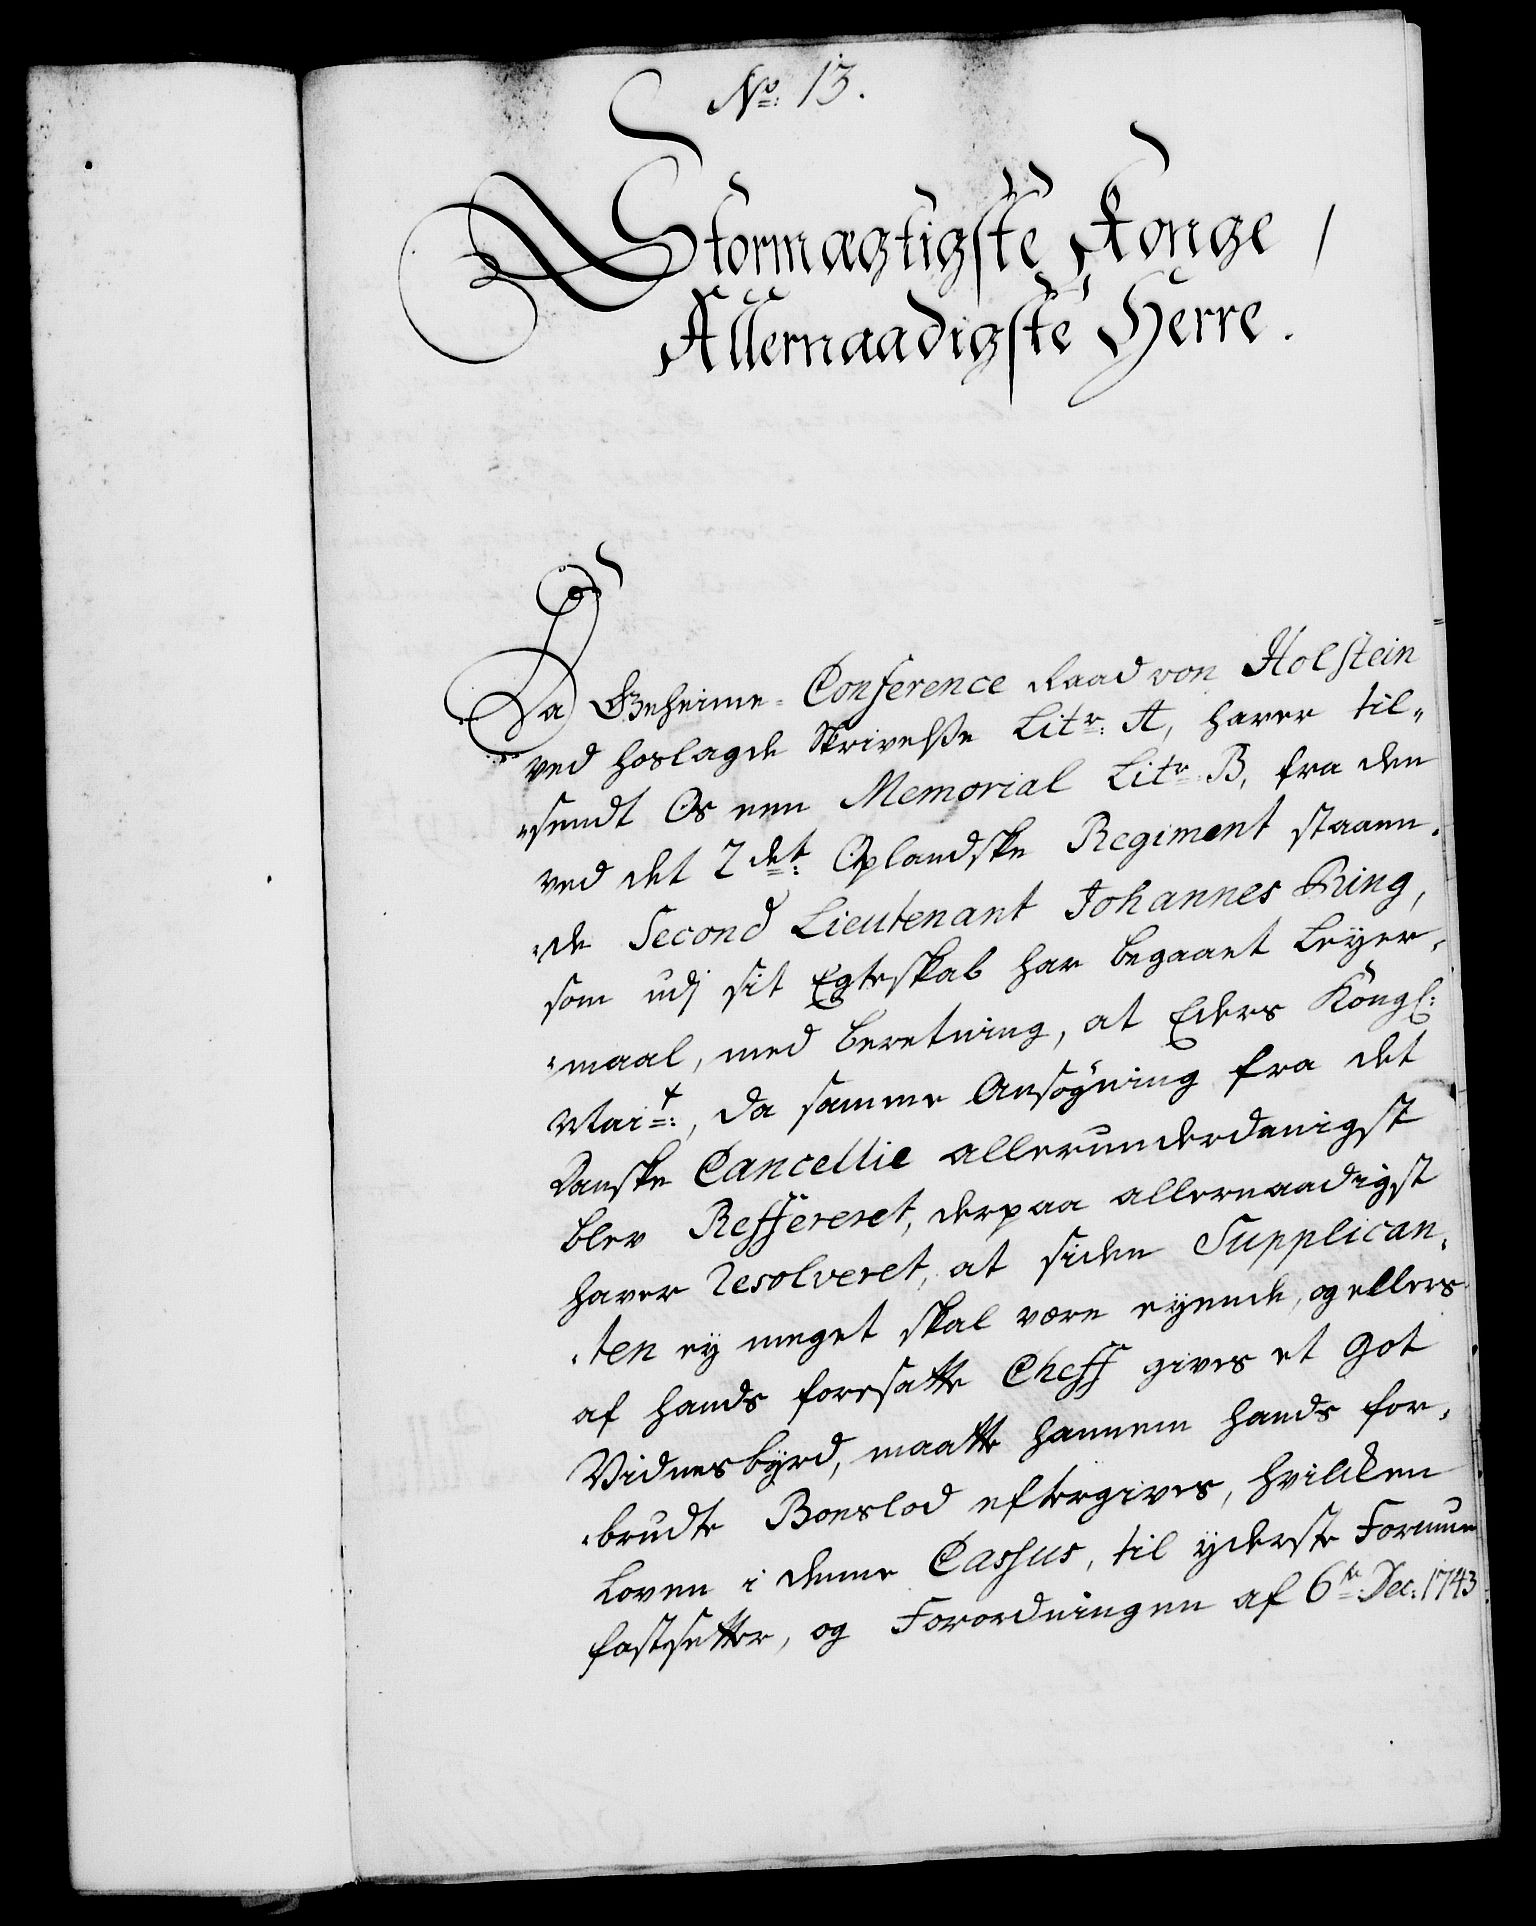 No: 13.
Stormægtigste Konge /
Allernaadigste Herre.
Da Geheime-Conference Raad von Holstein
ved hoslagde Skrivelsse Litr: A, haver til-
sendt Os een Memorial Litr: B, fra den
ved det 2det: Oplandske Regiment staaen-
de Second Lieutenant Johannes Ring,
som udj sit Egteskab har begaaet Leyer-
maal, med beretning, at Eders Kongl:
Mait:, da samme Ansøgning fra det
Danske Cancellie allerunderdanigst
blev Reffereret, derpaa allernaadigst
haver Resolveret, at siden Supplican-
ten ey meget skal være eyende, og ellers
af hands foresatte Cheff gives et Got
Vidnesbyrd, maatte hannem hands for-
brudte Boeslod eftergives, hvilcken
Loven i denne Cassus, til yderste Formue
fastsetter, og Forordningen af 6te: Dec: 1743